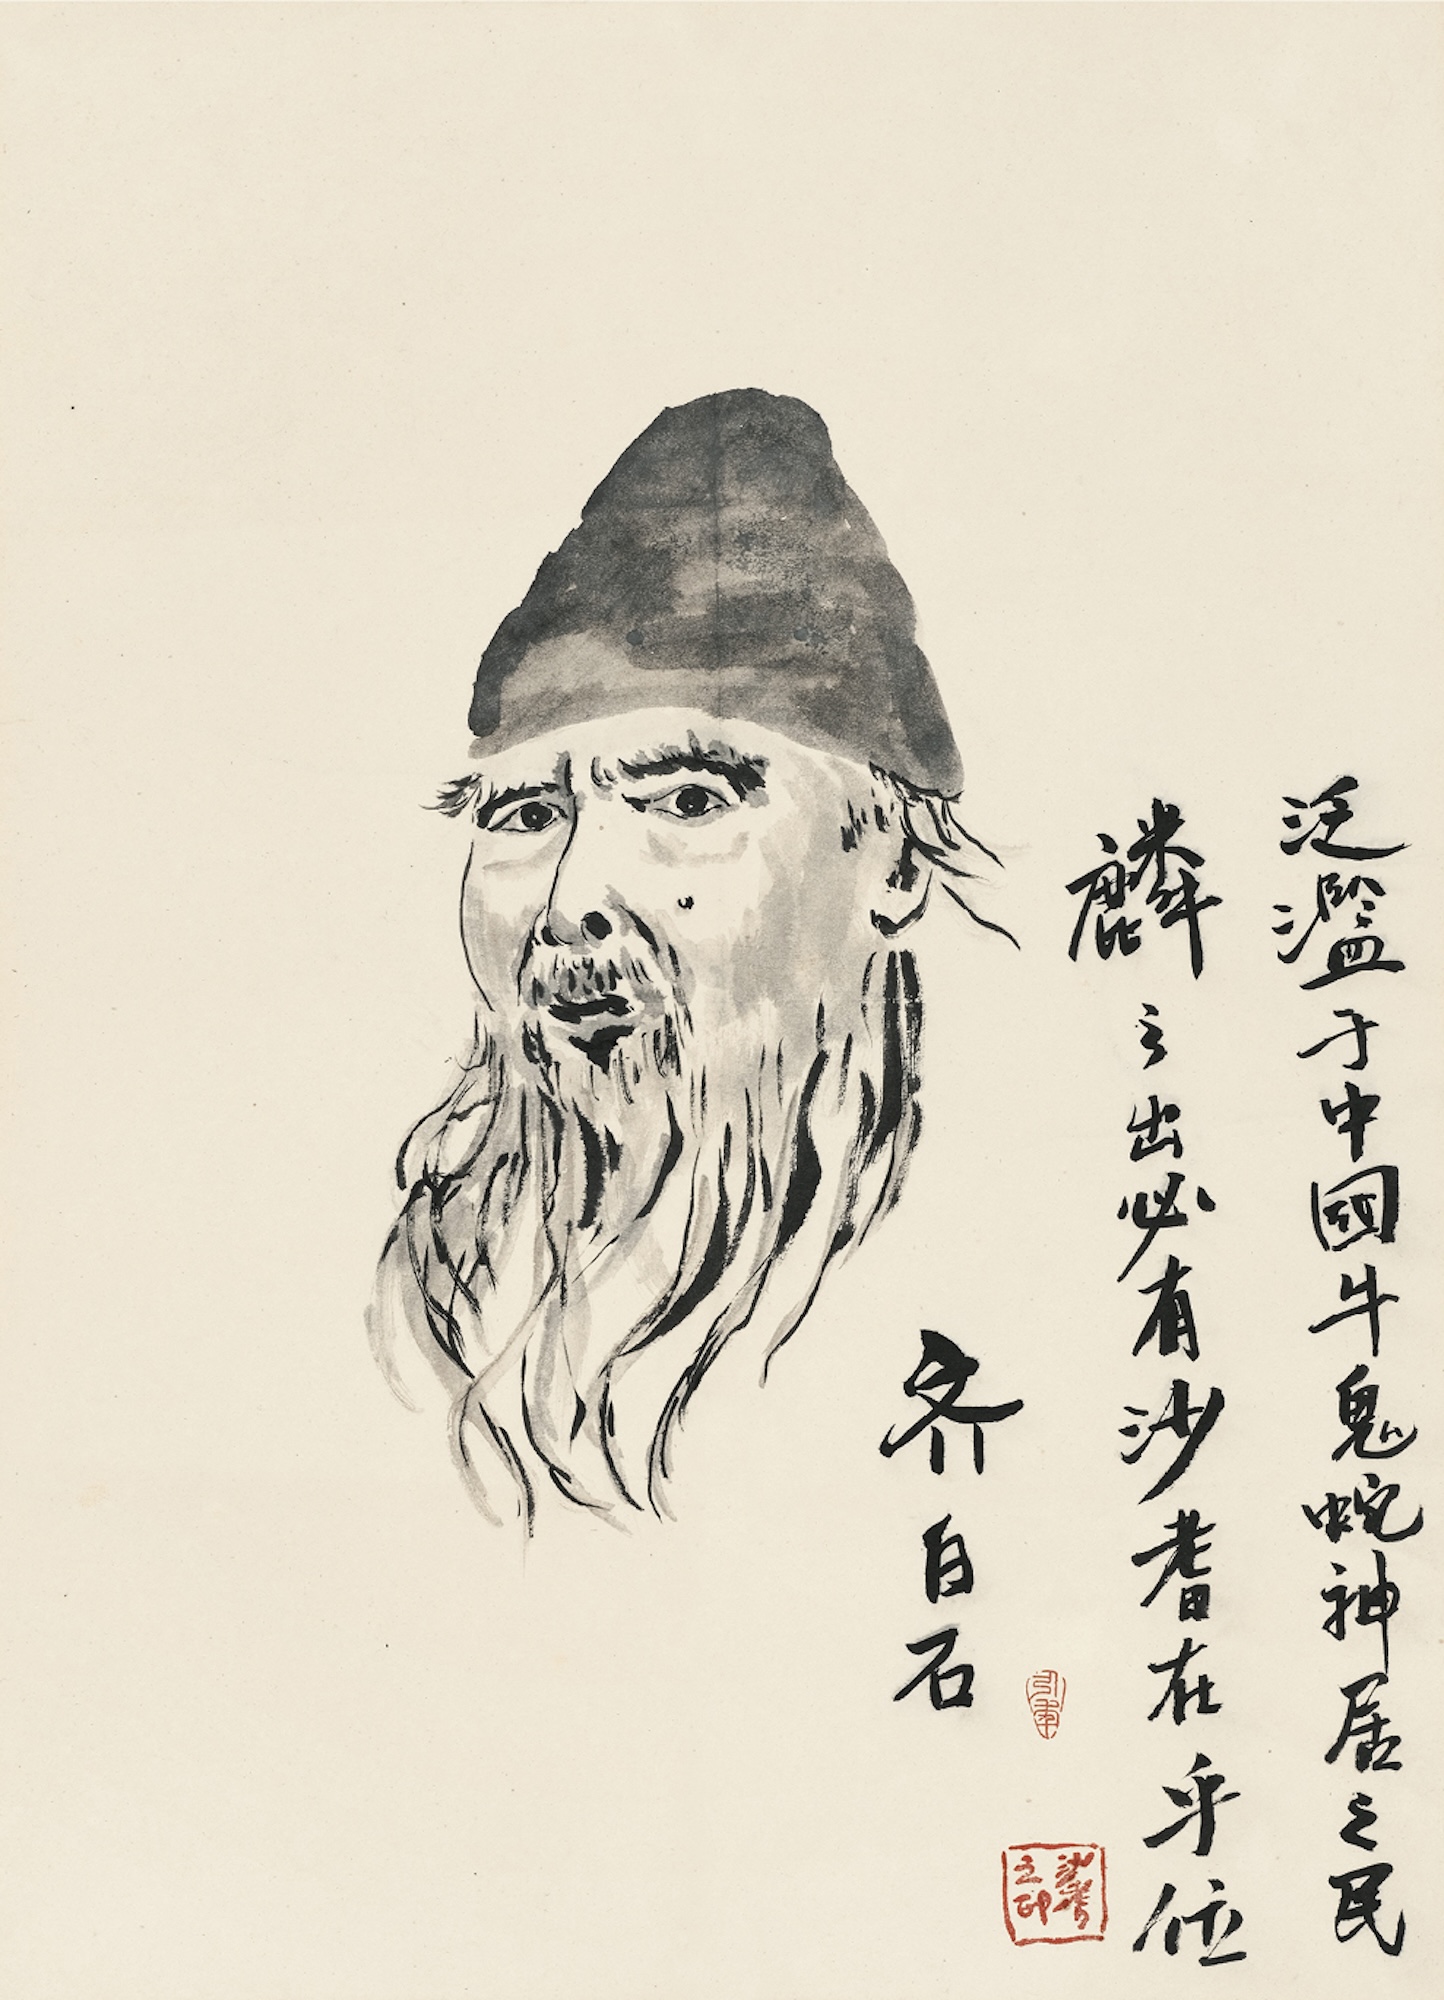 泛濫于中國牛鬼蛇神居之民
麟之出必有沙耆在乎位
齐白石
沙耆之印